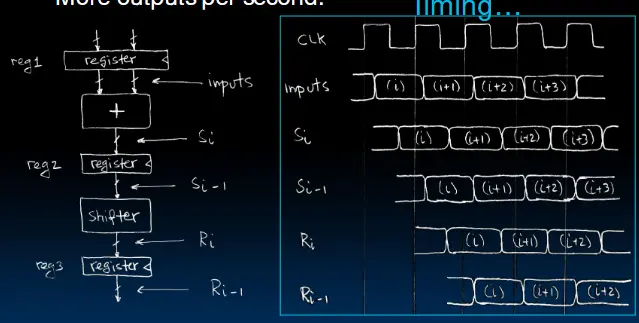 More outputs per second.
Timing...
reg1 register
inputs
+
Si
reg2 register
Si-1
Shifter
Ri
reg3 register
Ri-1
CLK
inputs (i) (i+1) (i+2) (i+3)
Si (i) (i+1) (i+2) (i+3)
Si-1 (i) (i+1) (i+2) (i+3)
Ri (i) (i+1) (i+2)
Ri-1 (i) (i+1) (i+2)